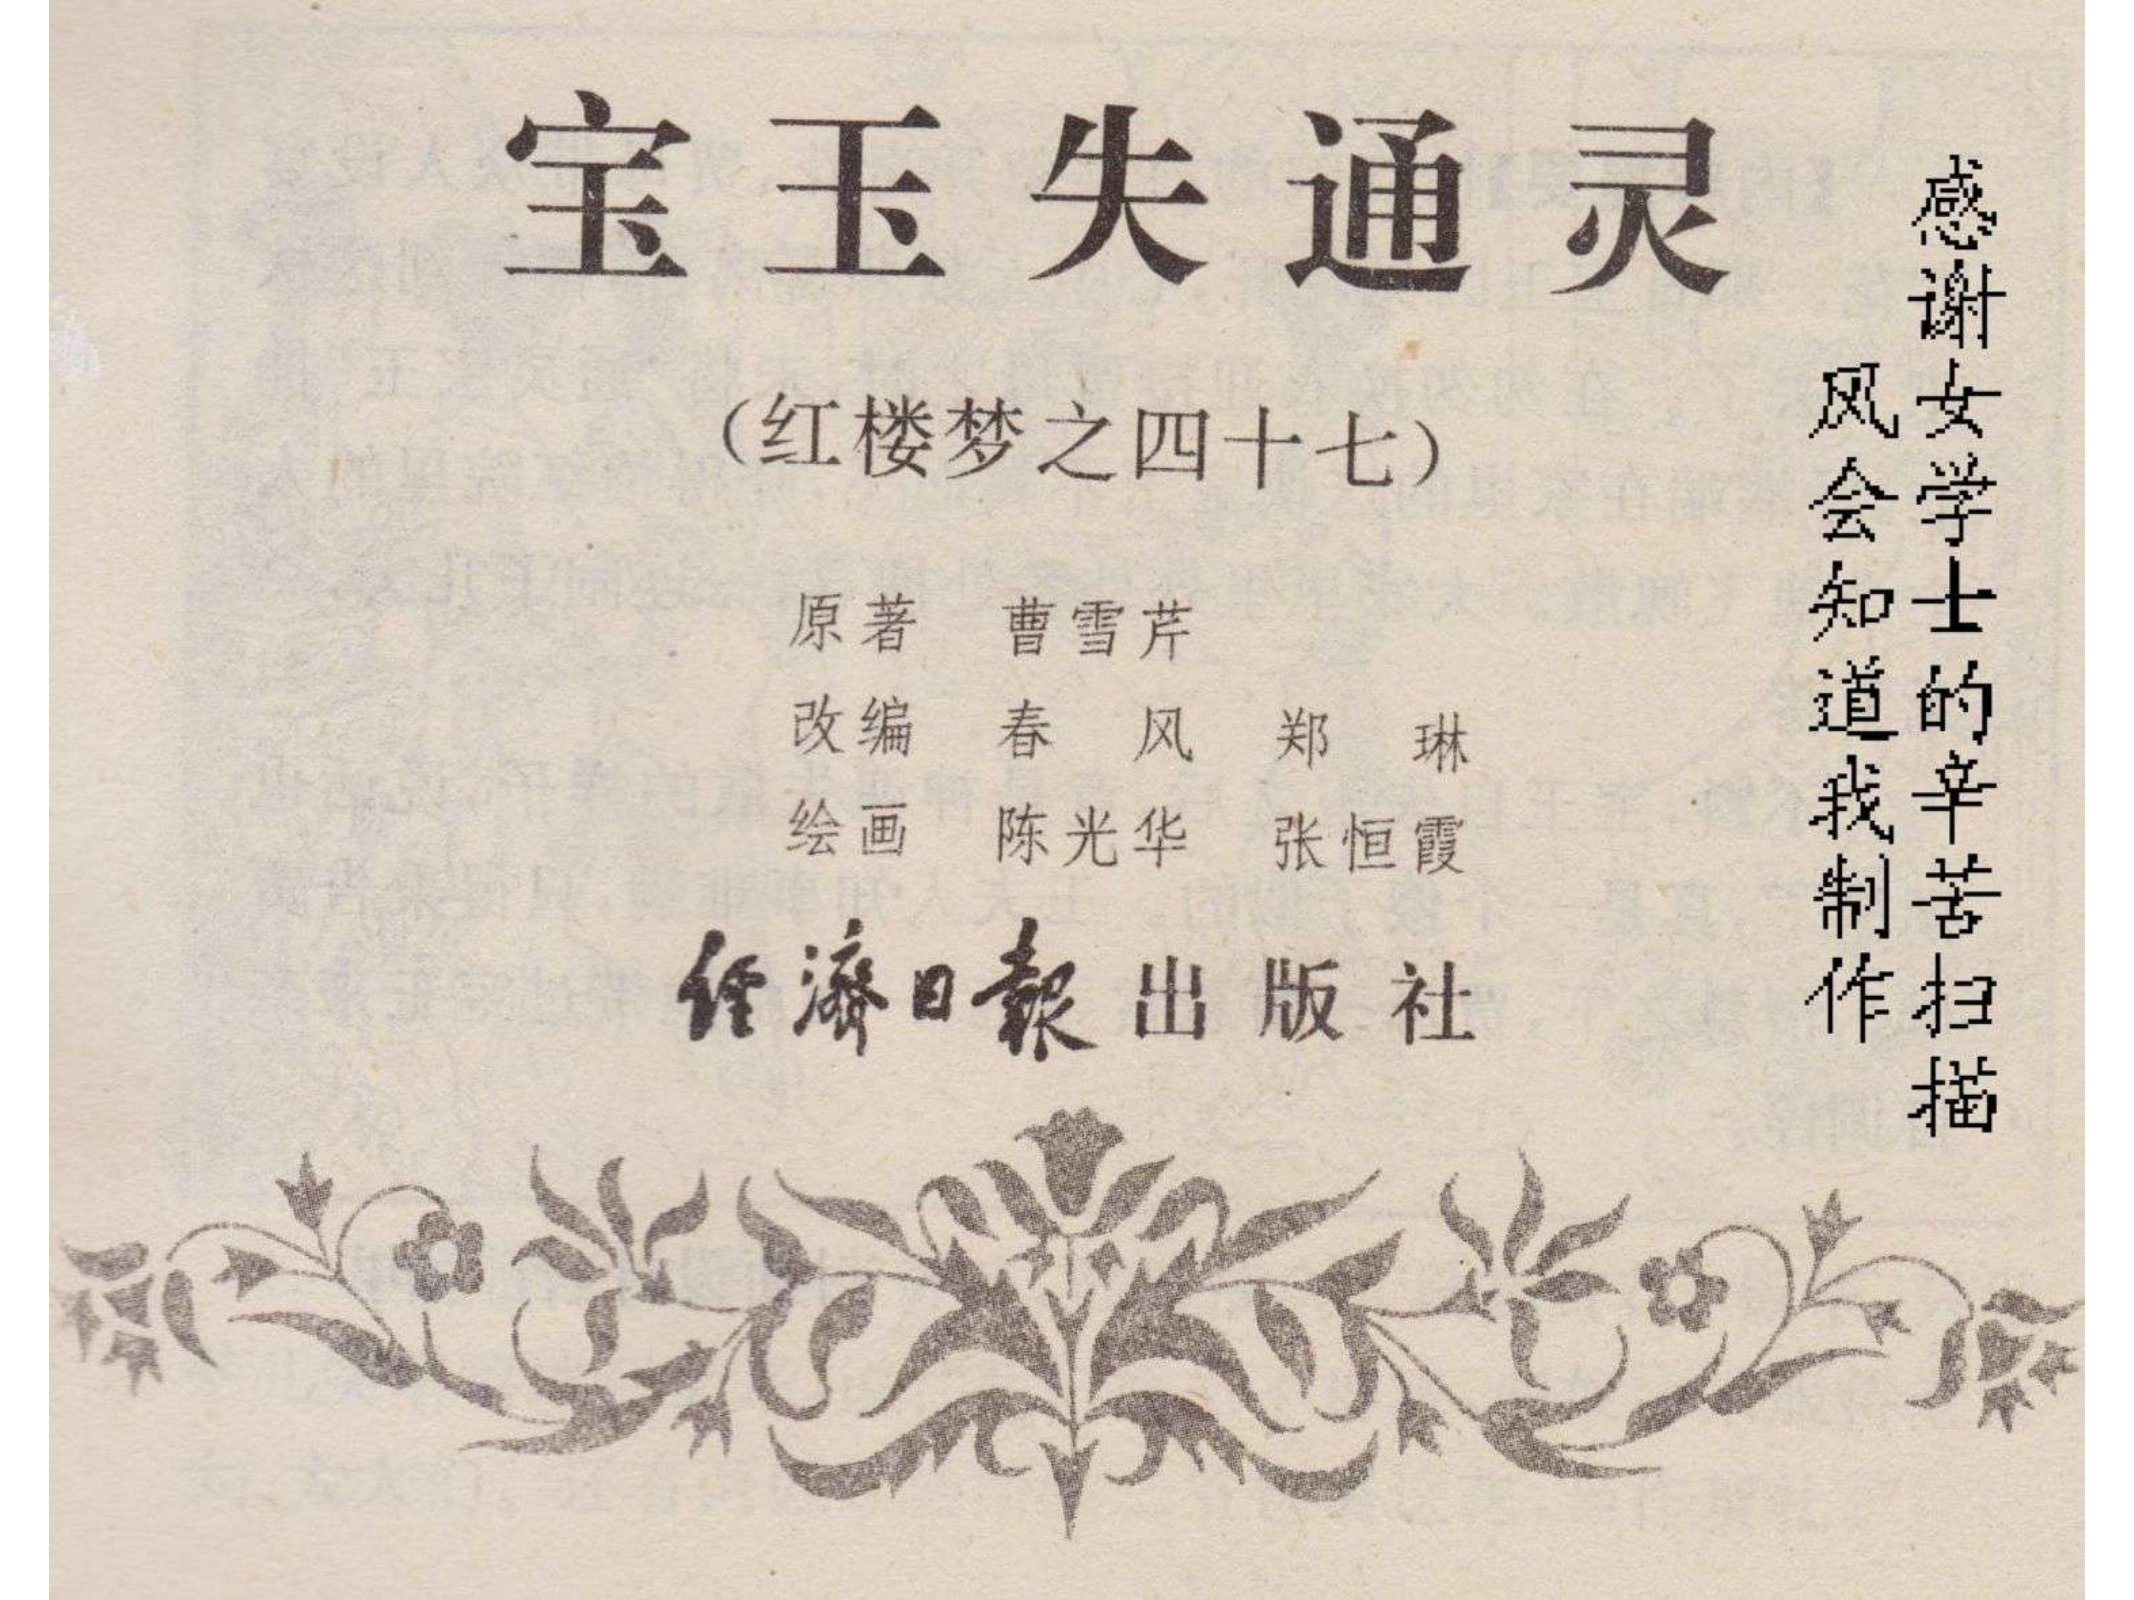 宝玉失通灵
（红楼梦之四十七）
原著 曹雪芹
改编 春风 郑琳
绘画 陈光华 张恒霞
经济日报出版社
感谢女学士的辛苦扫描
风会知道我制作